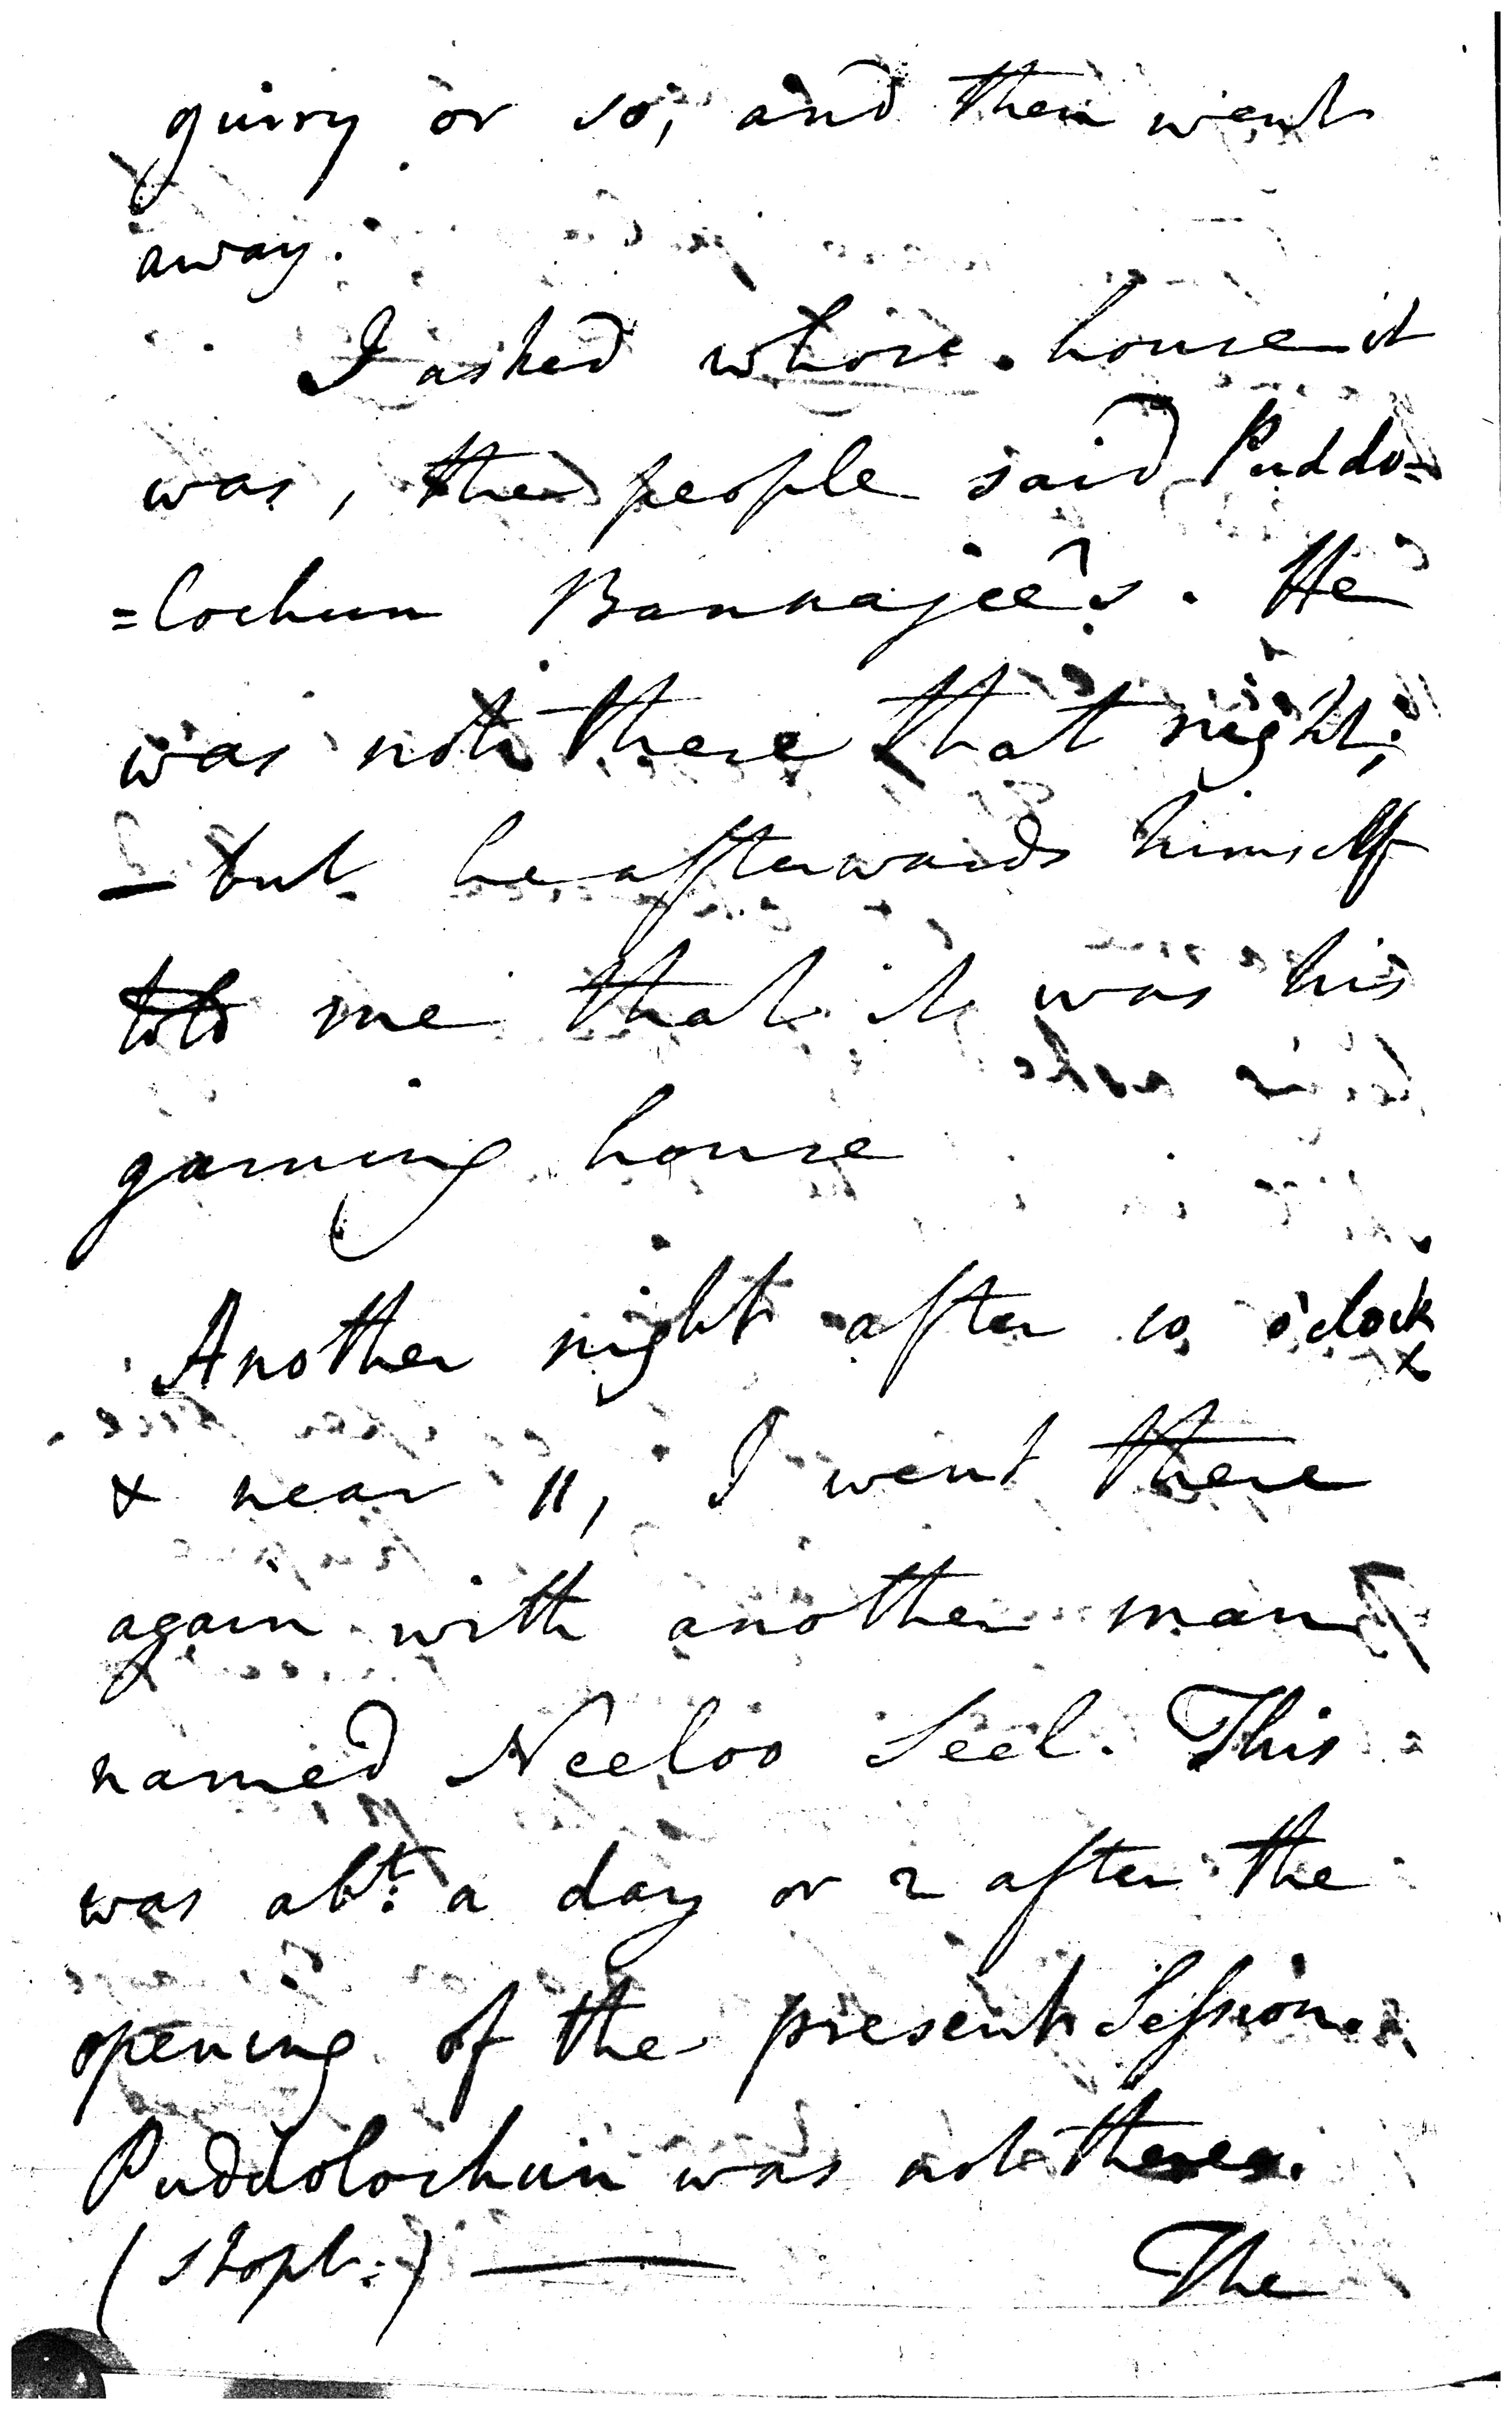 quiry or so, and then went
away.
I asked whose house it
was, the people said Puddo=
=lochun Bannajee's. He
was not there that night;
— but he afterwards himself
told me that it was his
gaming house
Another night after 10 o'clock
& near 11, I went there
again with another man
named Neeloo Seel. This
was abt. a day or 2 after the
opening of the present Session.
Puddolochun was not there.
(stopt.) — The